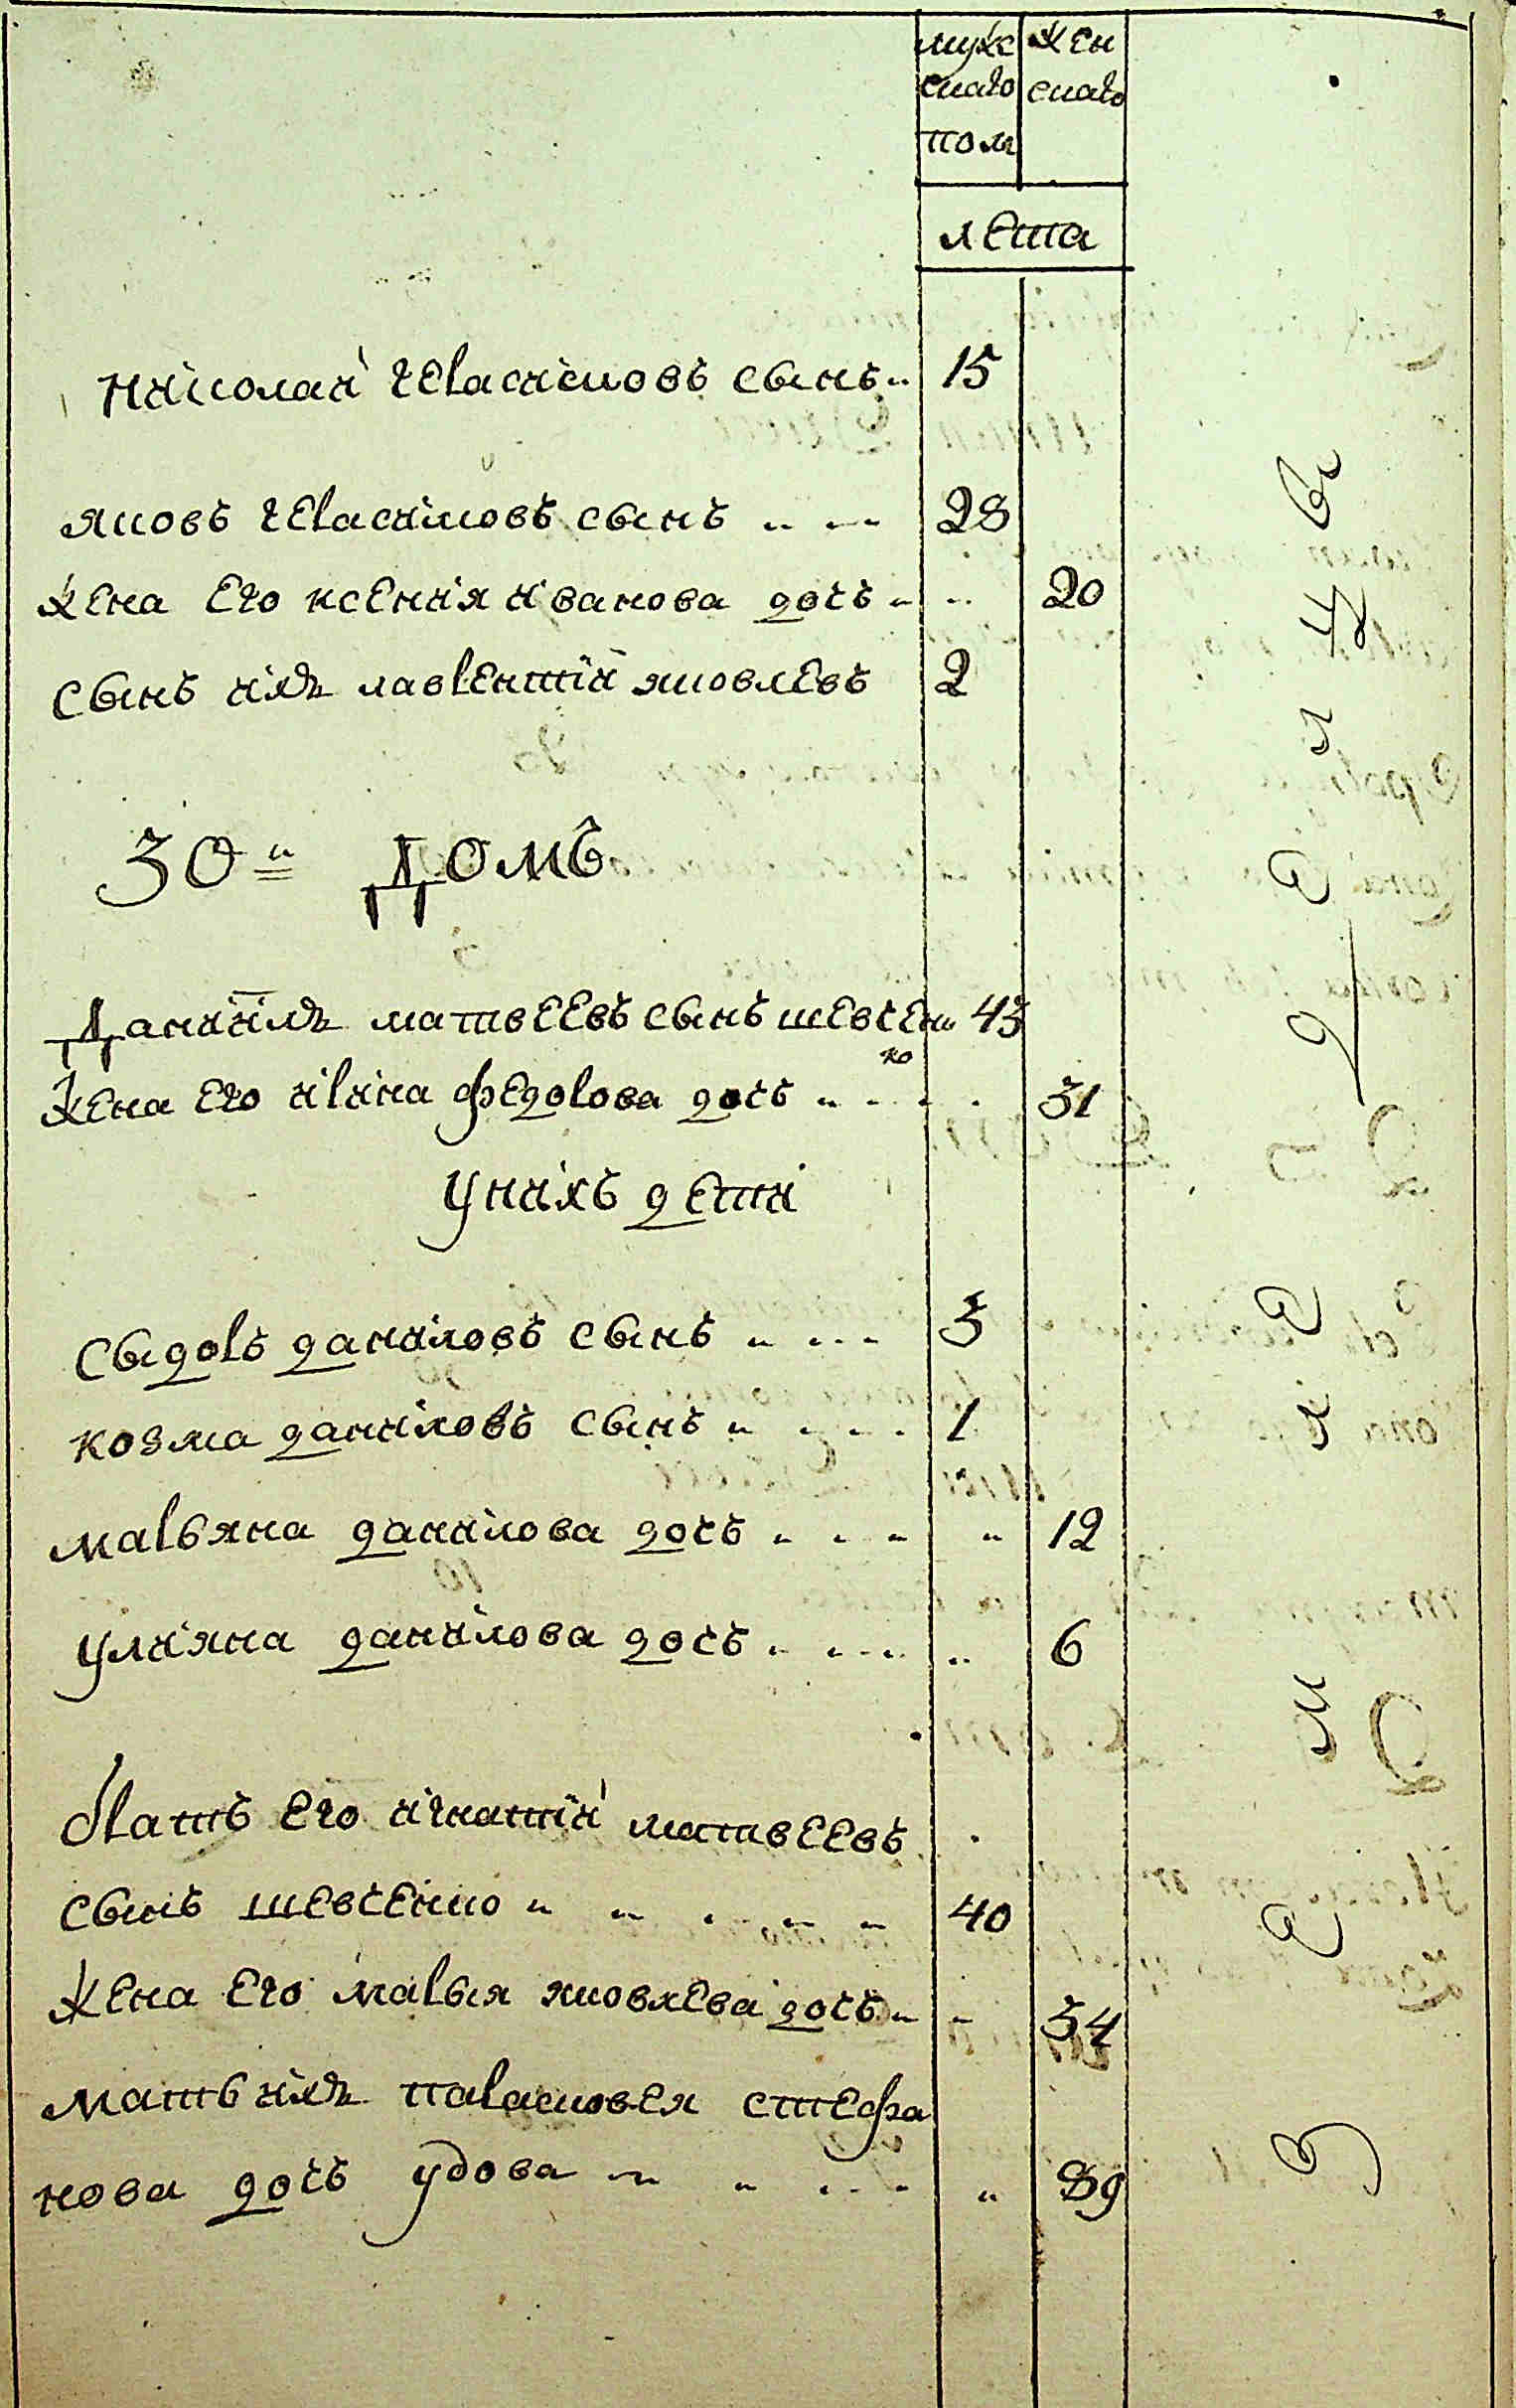 мужс жен
скаго скаго
полу
лета
Николай герасимовъ сынъ 15
яковъ герасимовъ сынъ 28
жена его ксения иванова дочь 20
сынъ ихъ лаврентий яковлевъ 2
30й домъ
Даниилъ матвеевъ сынъ шевчен 43
ко
жена его ирина федорова дочь 31
у нихъ дети
Сыдоръ даниловъ сынъ 3
козма даниловъ сынъ 1
марьяна данилова дочь 12
улияна данилова дочь 6
братъ его игнатий матвеевъ
сынъ шевченко 40
жена его марья яковлева дочь 34
мать ихъ парасковея стефа
нова дочь удова 89